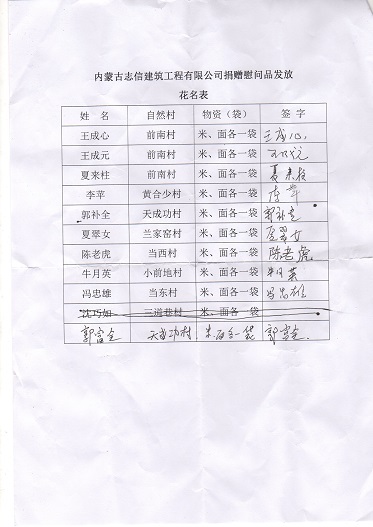 内蒙古志信建筑工程有限公司捐赠慰问品发放
花名表
姓 名 自然村 物资（袋） 签 字
王成心 前南村 米、面各一袋 王成心
王成元 前南村 米、面各一袋
夏来柱 前南村 米、面各一袋 夏来柱
李苹 黄合少村 米、面各一袋 李苹
郭补全 天成功村 米、面各一袋 郭补全
夏翠女 兰家窑村 米、面各一袋 夏翠女
陈老虎 当西村 米、面各一袋 陈老虎
牛月英 小前地村 米、面各一袋
冯忠雄 当东村 米、面各一袋 冯忠雄
沈巧如 三道巷村 米、面各一袋
郭富全 天成功村 米面各一袋 郭富全